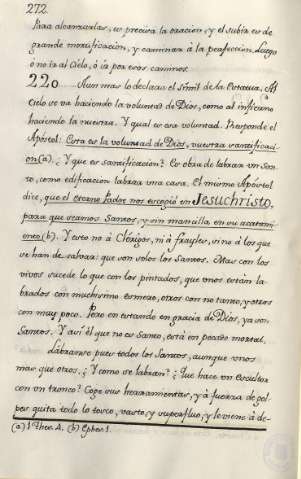 272
Para alcanzarlas, es precisa la oracion, y el subir es de
grande mortificación, y caminar à la perfeccion. Luego
ò no ir al Cielo, ò ir por esos caminos.
220 Aun mas lo declara el Simil de la Estatua. Al
Cielo se va haciendo la voluntad de Dios, como al infierno
haciendo la nuestra. Y qual es esa voluntad. Responde el
Apóstol: Esta es la voluntad de Dios, vuestra santificaci-
on (a). ¿Y que es santificacion? Es obra de labrar un San-
to, como edificacion labrar una casa. El mismo Apóstol
dice, que el eterno Padre nos escogió en Jesuchristo,
para que seamos Santos, y sin mancilla en su acatami-
ento (b). Y esto no à Clérigos, ni à frayles, si no à los que
se han de salvar: que son solos los Santos. Mas con los
vivos sucede lo que con los pintados, que unos están la-
brados con muchisimo esmero, otros con no tanto, y otros
con muy poco. Pero en estando en gracia de Dios, ya son
Santos. Y asi el que no es Santo, está en pecado mortal.
Labranse pues todos los Santos, aunque unos
mas que otros. ¿Y como se labran? ¿Que hace un Escultor
con un tronco? Coge sus herramientas, y à fuerza de gol-
pes quita todo lo tosco, vasto, y superfluo, y le viene à de-
(a) 1 Thes. 4. (b) Ephes. 1.